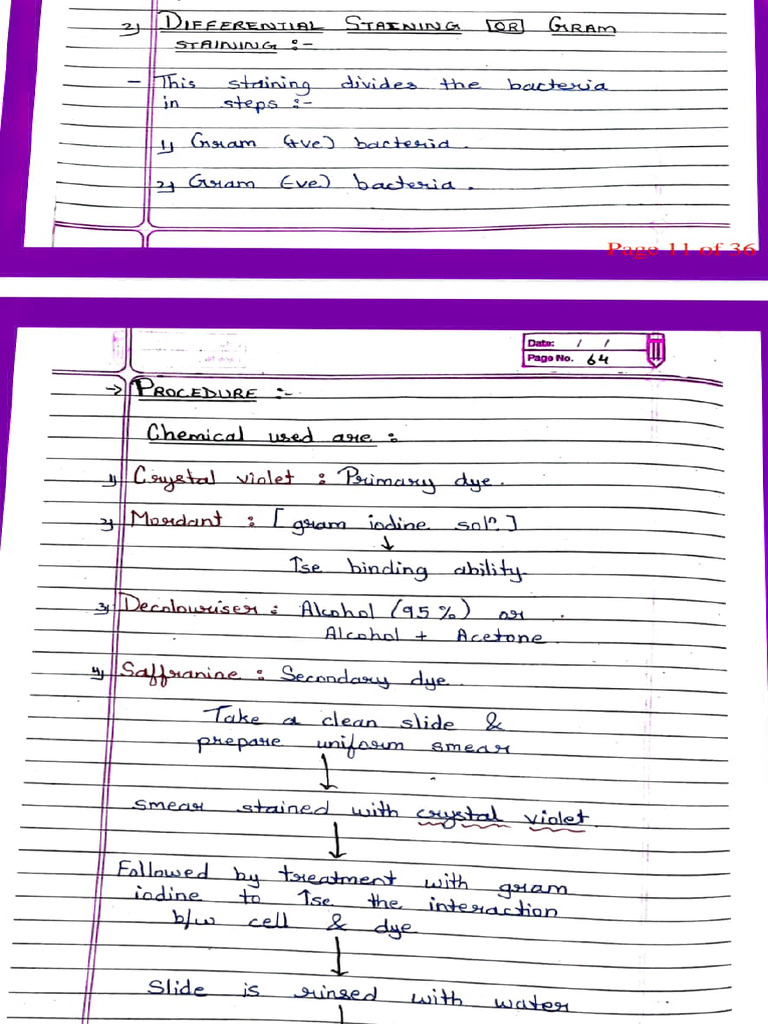 2) DIFFERENTIAL STAINING OR GRAM
STAINING :-
- This staining divides the bacteria
in steps :-
1) Gram (+ve) bacteria.
2) Gram (-ve) bacteria.
Page 11 of 36
Date: / /
Page No. 64
→ PROCEDURE :-
Chemical used are :
1) Crystal violet : Primary dye.
2) Mordant : [gram iodine solⁿ]
↓
↑se binding ability.
3) Decolouriser : Alcohol (95%) or
Alcohol + Acetone
4) Saffranine : Secondary dye
Take a clean slide &
prepare uniform smear
↓
smear stained with crystal violet
↓
Followed by treatment with gram
iodine to ↑se the interaction
b/w cell & dye
↓
Slide is rinsed with water